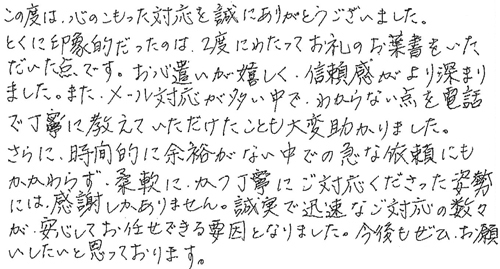 この度は、心のこもった対応を誠にありがとうございました。
とくに印象的だったのは、2度にわたってお礼のお葉書をいた
だいた点です。お心遣いが嬉しく、信頼感がより深まり
ました。また、メール対応が多い中で、わからない点を電話
で丁寧に教えていただけたことも大変助かりました。
さらに、時間的に余裕がない中での急な依頼にも
かかわらず、柔軟に、かつ丁寧にご対応くださった姿勢
には、感謝しかありません。誠実で迅速なご対応の数々
が、安心してお任せできる要因となりました。今後もぜひ、お願
いしたいと思っております。